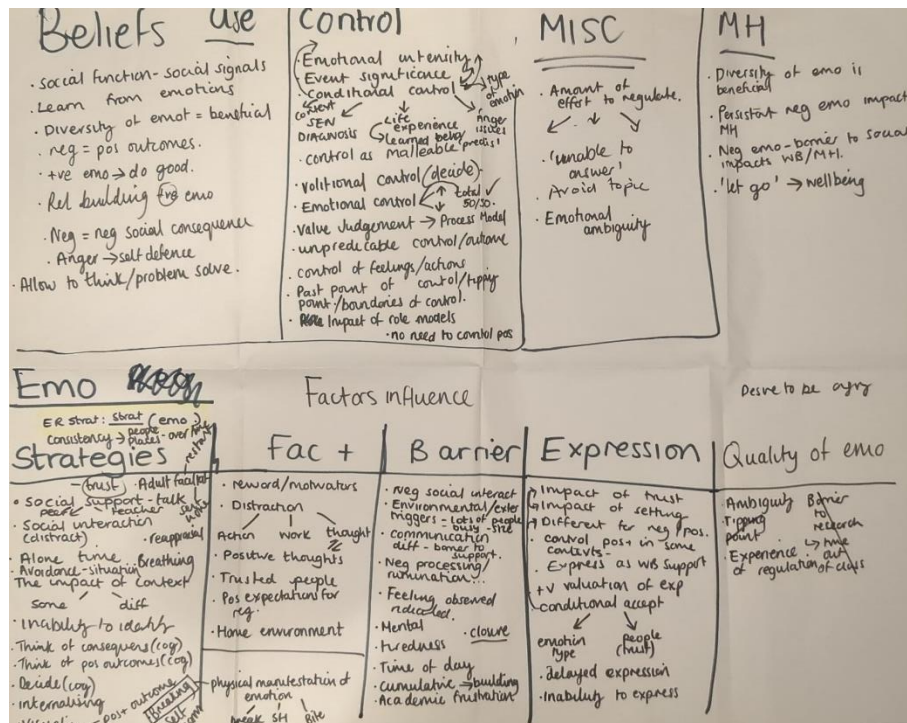 Beliefs use
· Social function - social signals
· Learn from emotions
· Diversity of emot = benefical
· neg = pos outcomes.
· +ve emo → do good.
· Rel building +ve emo
· Neg = neg social consequence
· Anger → self defence
· Allow to think/problem solve.
Control
· Emotional intensity
· Event significance
· Conditional control
type of emotion
context
SEN
DIAGNOSIS
Life experience
Learned behav
Anger issues
· control as malleable
· volitional control (decide)
· Emotional control
total ✓
50/50.
· Value Judgement → Process Model
· unpredicable control/outcome
· control of feelings/actions
· Past point of control/tipping
point/boundaries of control.
· Impact of role models
· no need to control pos
MISC
· Amount of
effort to regulate.
· 'unable to
answer'
· Avoid topic
· Emotional
ambiguity
MH
· Diversity of emo is
beneficial
· Persistant neg emo impact
MH
· Neg emo - barrier to social
impacts WB/MH.
· 'let go' → wellbeing
Emo
ER strat: strat (emo)
consistency → people
places - over time
Strategies
Factors influence
Desire to be angry
(trust) · Adult facilitat
· Social support - talk
peer teacher
· Social interaction
(distract)
· reappraisal
· Alone time
· Breathing
· Avoidance - situation
The impact of context
same diff
· Inability to identify
· Think of consequens (cog)
· Think of pos outcomes (cog)
· Decide (cog)
· Internalising
- post outcome
Fac +
· reward/motivators
· Distraction
Action work thought
· Positive thoughts
· Trusted people
· Pos expectations for
reg.
· Home environment
· physical manifestation of
emotion
break SH Bite
Barrier
· Neg social interact
· Environmental/exter
triggers - lots of people
busy - size
· communication
diff - barrier to
support.
· Neg processing/
rumination...
· Feeling observed
ridiculed.
· Mental
· closure
· tiredness
· Time of day
· cumulative → building
· Academic frustration
Expression
· Impact of trust
· Impact of setting
· Different for neg/pos.
· control pos + in some
contexts -
· Express as WB support
+v valuation of exp
conditional accept
emotion
type
people
(trust)
· delayed expression
· Inability to express
Quality of emo
· Ambiguity
Barrier
to
research
· Tipping
point
↳ time
out
of class
· Experience
of regulation